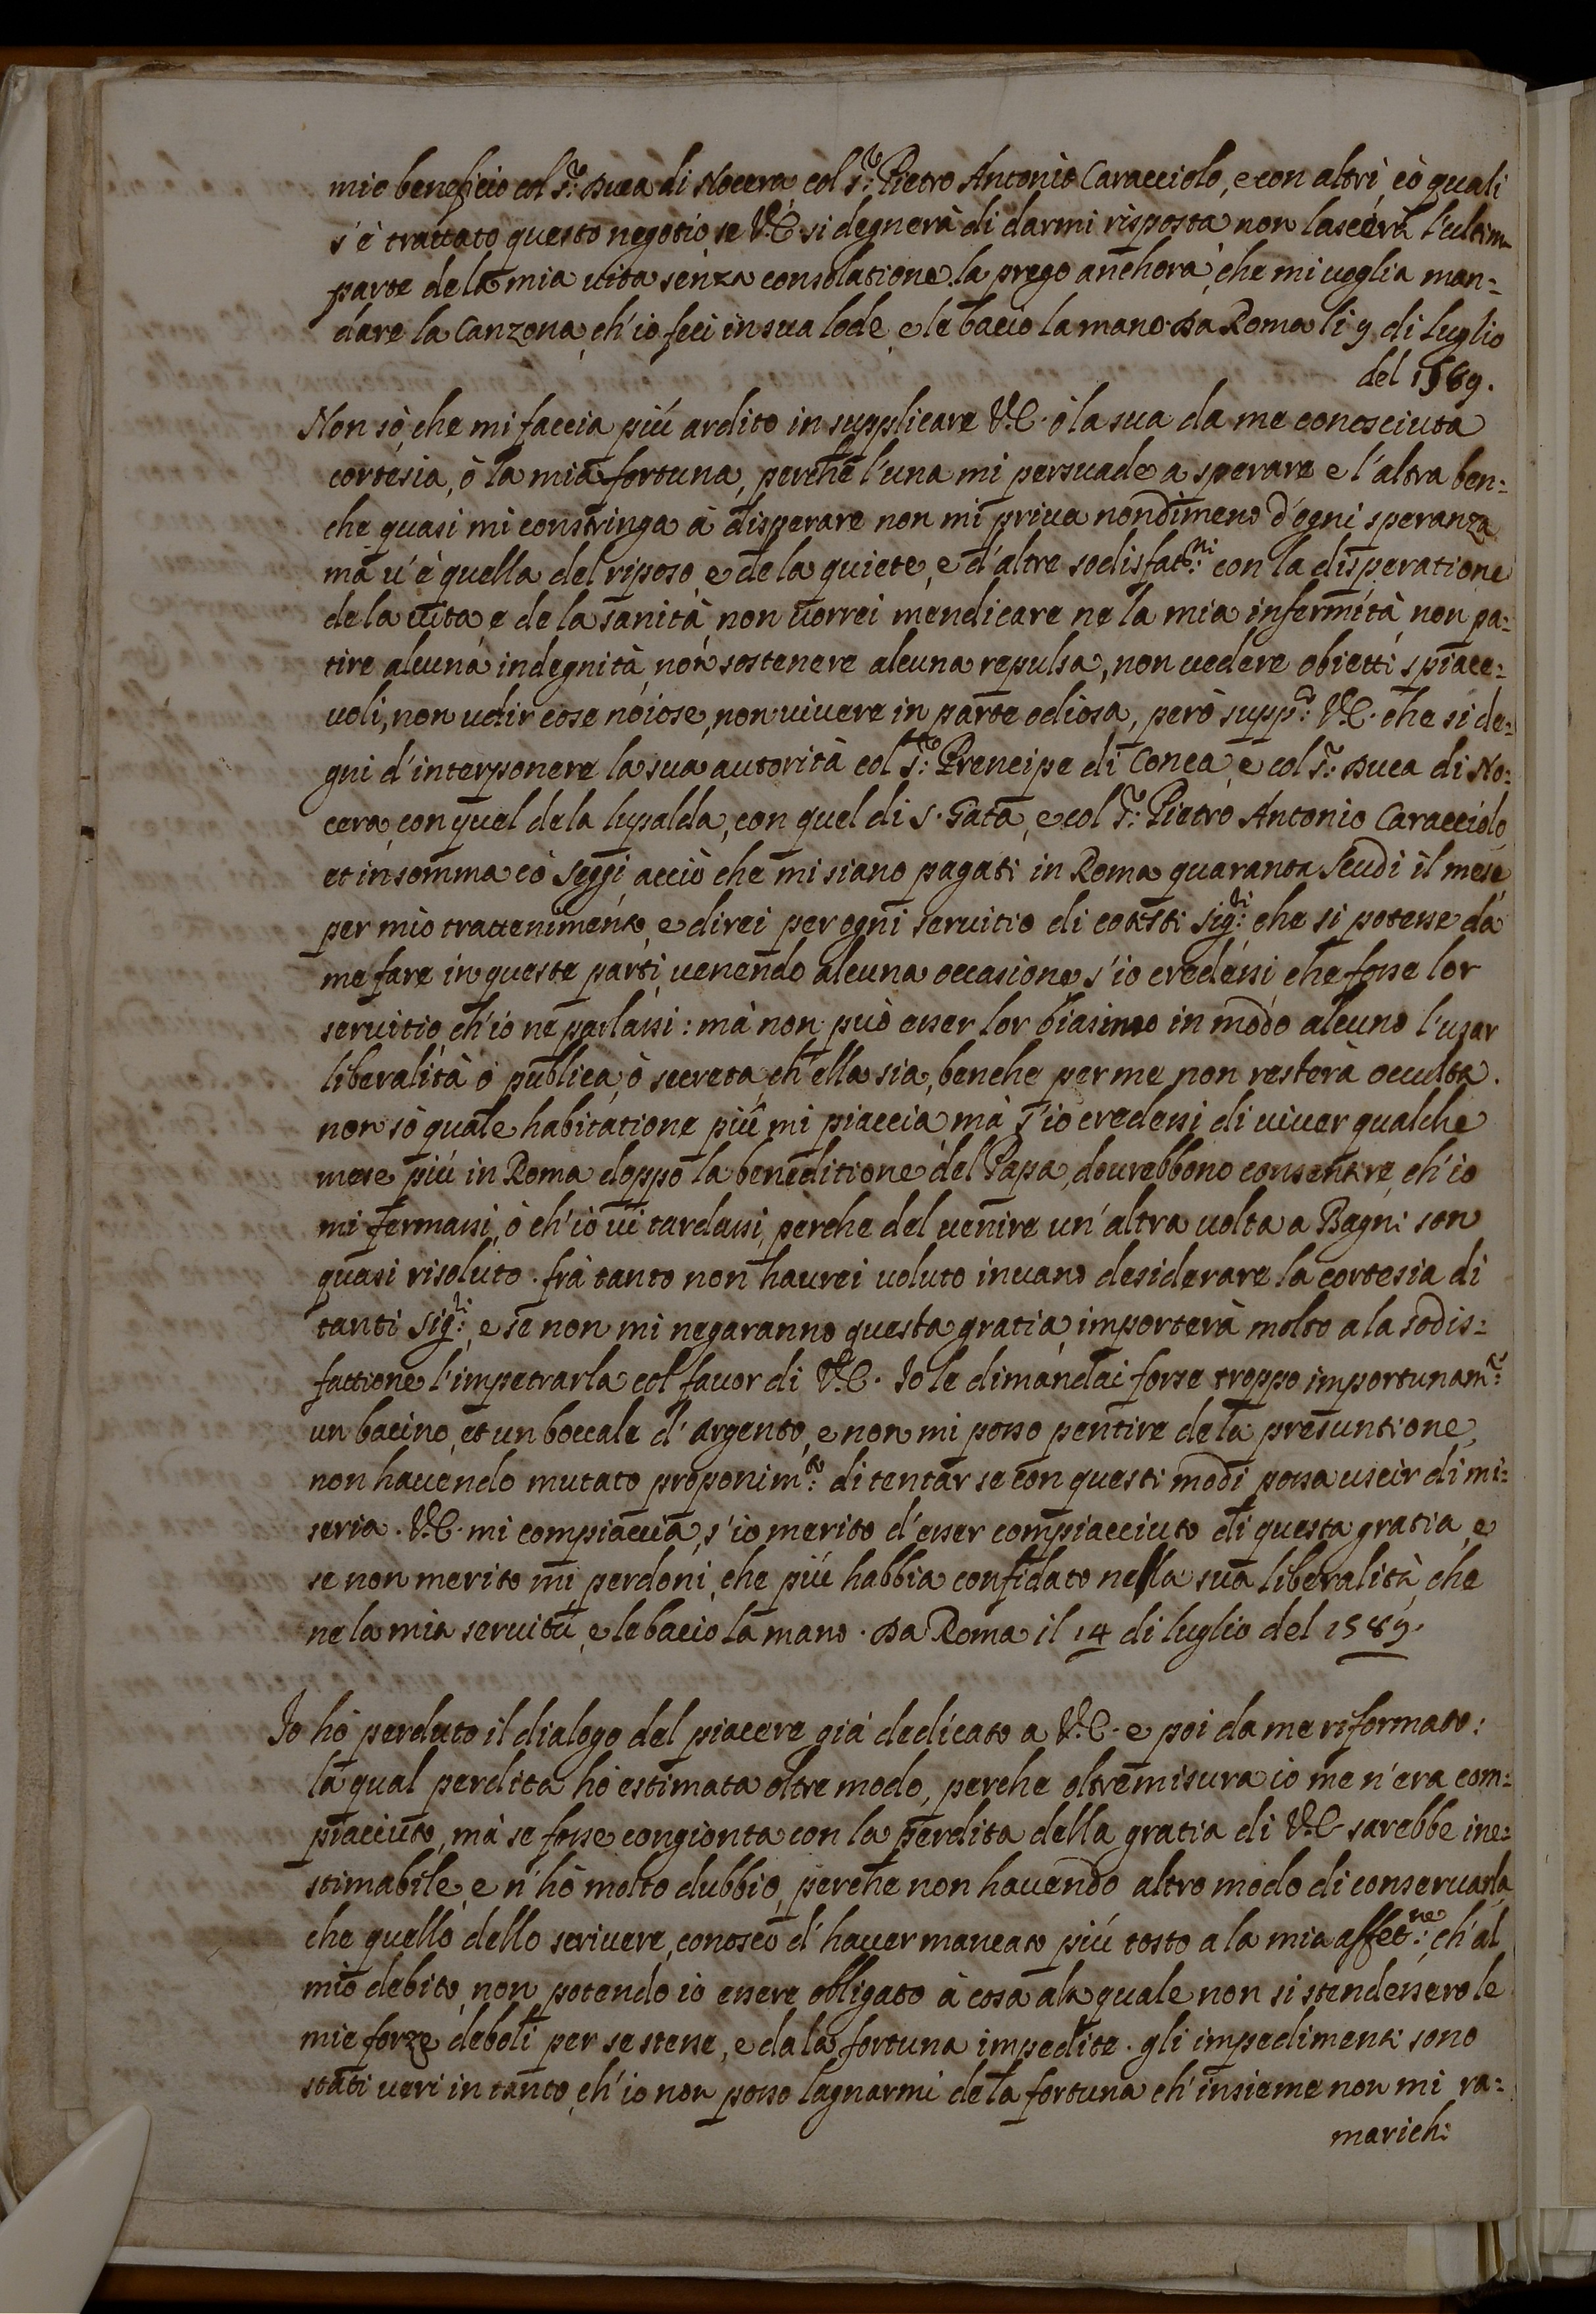 mio beneficio col S.r Duca di Nocera col S.r Pietro Antonio Caracciolo, e con altri, cò quali
s'è trattato questo negotio, se V.E. si degnerà di darmi risposta, non lascerà l'ultima
parte de la mia vita senza consolatione. la prego anchora, che mi voglia man=
dare la Canzona, ch'io feci in sua lode, e le bacio la mano. Da Roma li 9 di luglio
del 1589.
Non sò, che mi faccia più ardito in supplicare V.E. ò la sua da me conosciuta
cortesia, ò la mia fortuna, perche l'una mi persuade a sperare e l'altra ben=
che quasi mi constringa à disperare non mi priva nondimeno d'ogni speranza
mà v'è quella del riposo, e de la quiete, e d'altre sodisfat.ni con la disperatione
de la vita, e de la sanità, non vorrei mendicare ne la mia infermità, non pa=
tire alcuna indegnità, non sostenere alcuna repulsa, non vedere obietti spiace=
voli, non udir cose noiose, non vivere in parte odiosa, però supp.co V.E. che si de=
gni d'interponere la sua autorità col S.r Prencipe di Conca, e col S.r Duca di No=
cera, con quel de la lupalda, con quel di S. Gata, e col S.r Pietro Antonio Caracciolo
et in somma cò seggi acciò che mi siano pagati in Roma quaranta scudi il mese
per mio trattenimento, e direi per ogni servitio di cotesti Sig.ri che si potesse da
me fare in queste parti, venendo alcuna occasione, s'io credessi che fosse lor
servitio, ch'io ne parlassi: mà non può esser lor biasimo in modo alcuno l'usar
liberalità ò publica, ò secreta, ch'ella sia, benche per me non resterà occulta.
non sò quale habitatione più mi piaccia, mà s'io credessi di viver qualche
mese più in Roma doppo la beneditione del Papa, dovrebbono consentire, ch'io
mi fermassi, ò ch'io vi tardassi, perche del venire un'altra volta a Bagni son
quasi risoluto. frà tanto non haurei voluto invano desiderare la cortesia di
tanti Sig.ri, e se non mi negaranno questa gratia, importerà molto a la sodis=
fattione l'impetrarla col favor di V.E. Io le dimandai forse troppo importunam.te
un bacino, et un boccale d'argento, e non mi posso pentire de la presuntione,
non havendo mutato proponim.to di tentar se con questi modi possa uscir di mi=
seria. V.E. mi compiaccia, s'io merito d'esser compiacciuto di questa gratia, e
se non merito mi perdoni, che più habbia confidato nella sua liberalità, che
ne la mia servitù, e le bacio la mano. Da Roma il 14 di luglio del 1589.
Io hò perduto il dialogo del piacere già dedicato a V.E. e poi da me riformato:
la qual perdita hò estimata oltre modo, perche oltremisura io me n'era com=
piacciuto, mà se fosse congionta con la perdita della gratia di V.E. sarebbe ine=
stimabile, e n'hò molto dubbio, perche non havendo altro modo di conservarla
che quello dello scrivere, conosco d'haver mancato più tosto a la mia affet.ne, ch'al
mio debito, non potendo io essere obligato à cosa ala quale non si stendessero le
mie forze deboli per se stesse, e da la fortuna impedite. gli impedimenti sono
stati veri in tanto, ch'io non posso lagnarmi de la fortuna ch'insieme non mi ra=
marich: